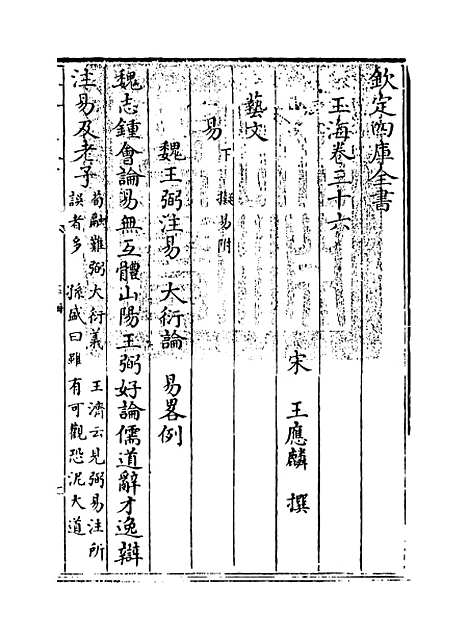 欽定四庫全書
玉海卷三十六
宋 王應麟 撰
藝文
易下 擬易附
魏王弼注易 大衍論 易畧例
魏志鍾會論易無互體山陽王弼好論儒道辭才逸辯
注易及老子 荀融難弼大衍義 王濟云見弼易注所
誤者多 孫盛曰雖有可觀恐泥大道